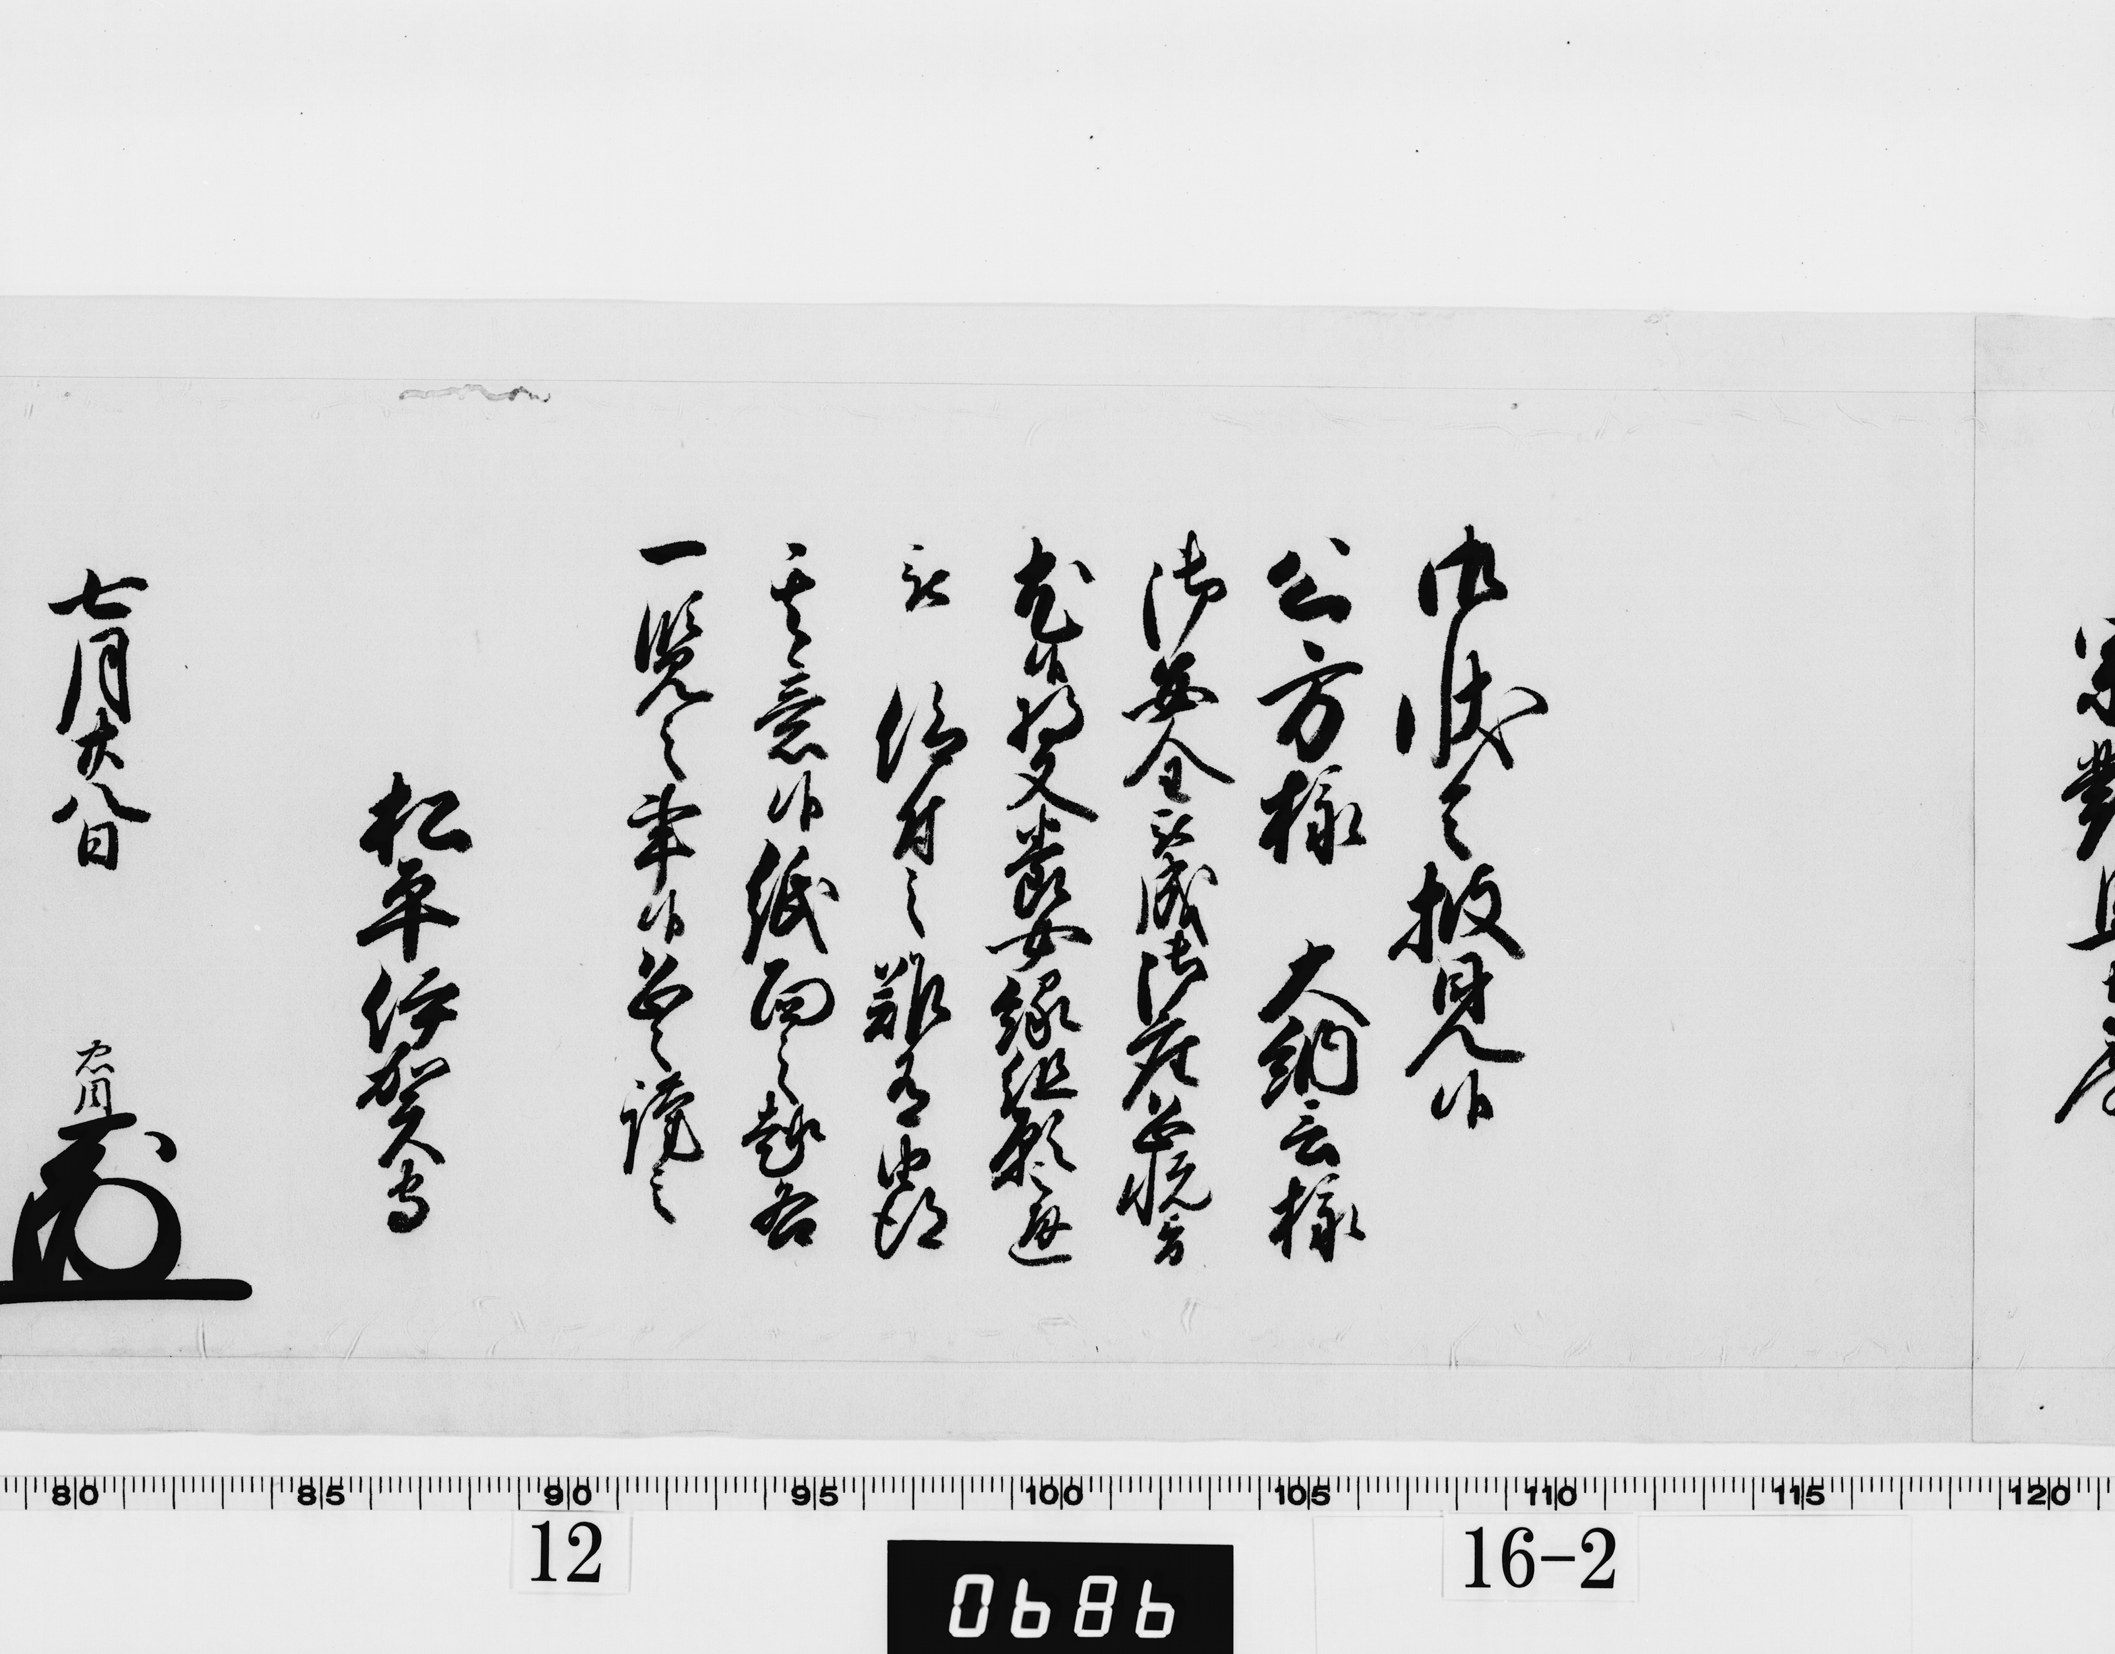 宗對
御状令披見候
公方様 大納言様
御安全被成御座恐悦旨
尤候将又養女縁組願之通
被 仰付之難有由得
其意候紙面之趣各
一覧之事候恐々謹言
松平伊賀守
七月廿八日 忠周
80 85 90 95 100 105 110 115 120
12 16-2
0686